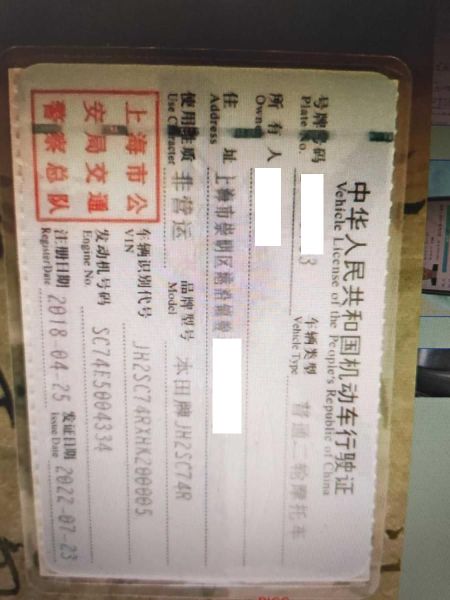 中华人民共和国机动车行驶证
Vehicle License of the People's Republic of China
号牌号码 3 车辆类型 普通二轮摩托车
Plate No. Vehicle Type
所有人
Owner
住址 上海市崇明区
Address
使用性质 非营运 品牌型号 本田牌JH2SC74R
Use Character Model
上海市公
安局交通
警察总队
车辆识别代号 JH2SC74RXHK200005
VIN
发动机号码 SC74E5004334
Engine No.
注册日期 2018-04-25 发证日期 2022-07-23
Register Date Issue Date